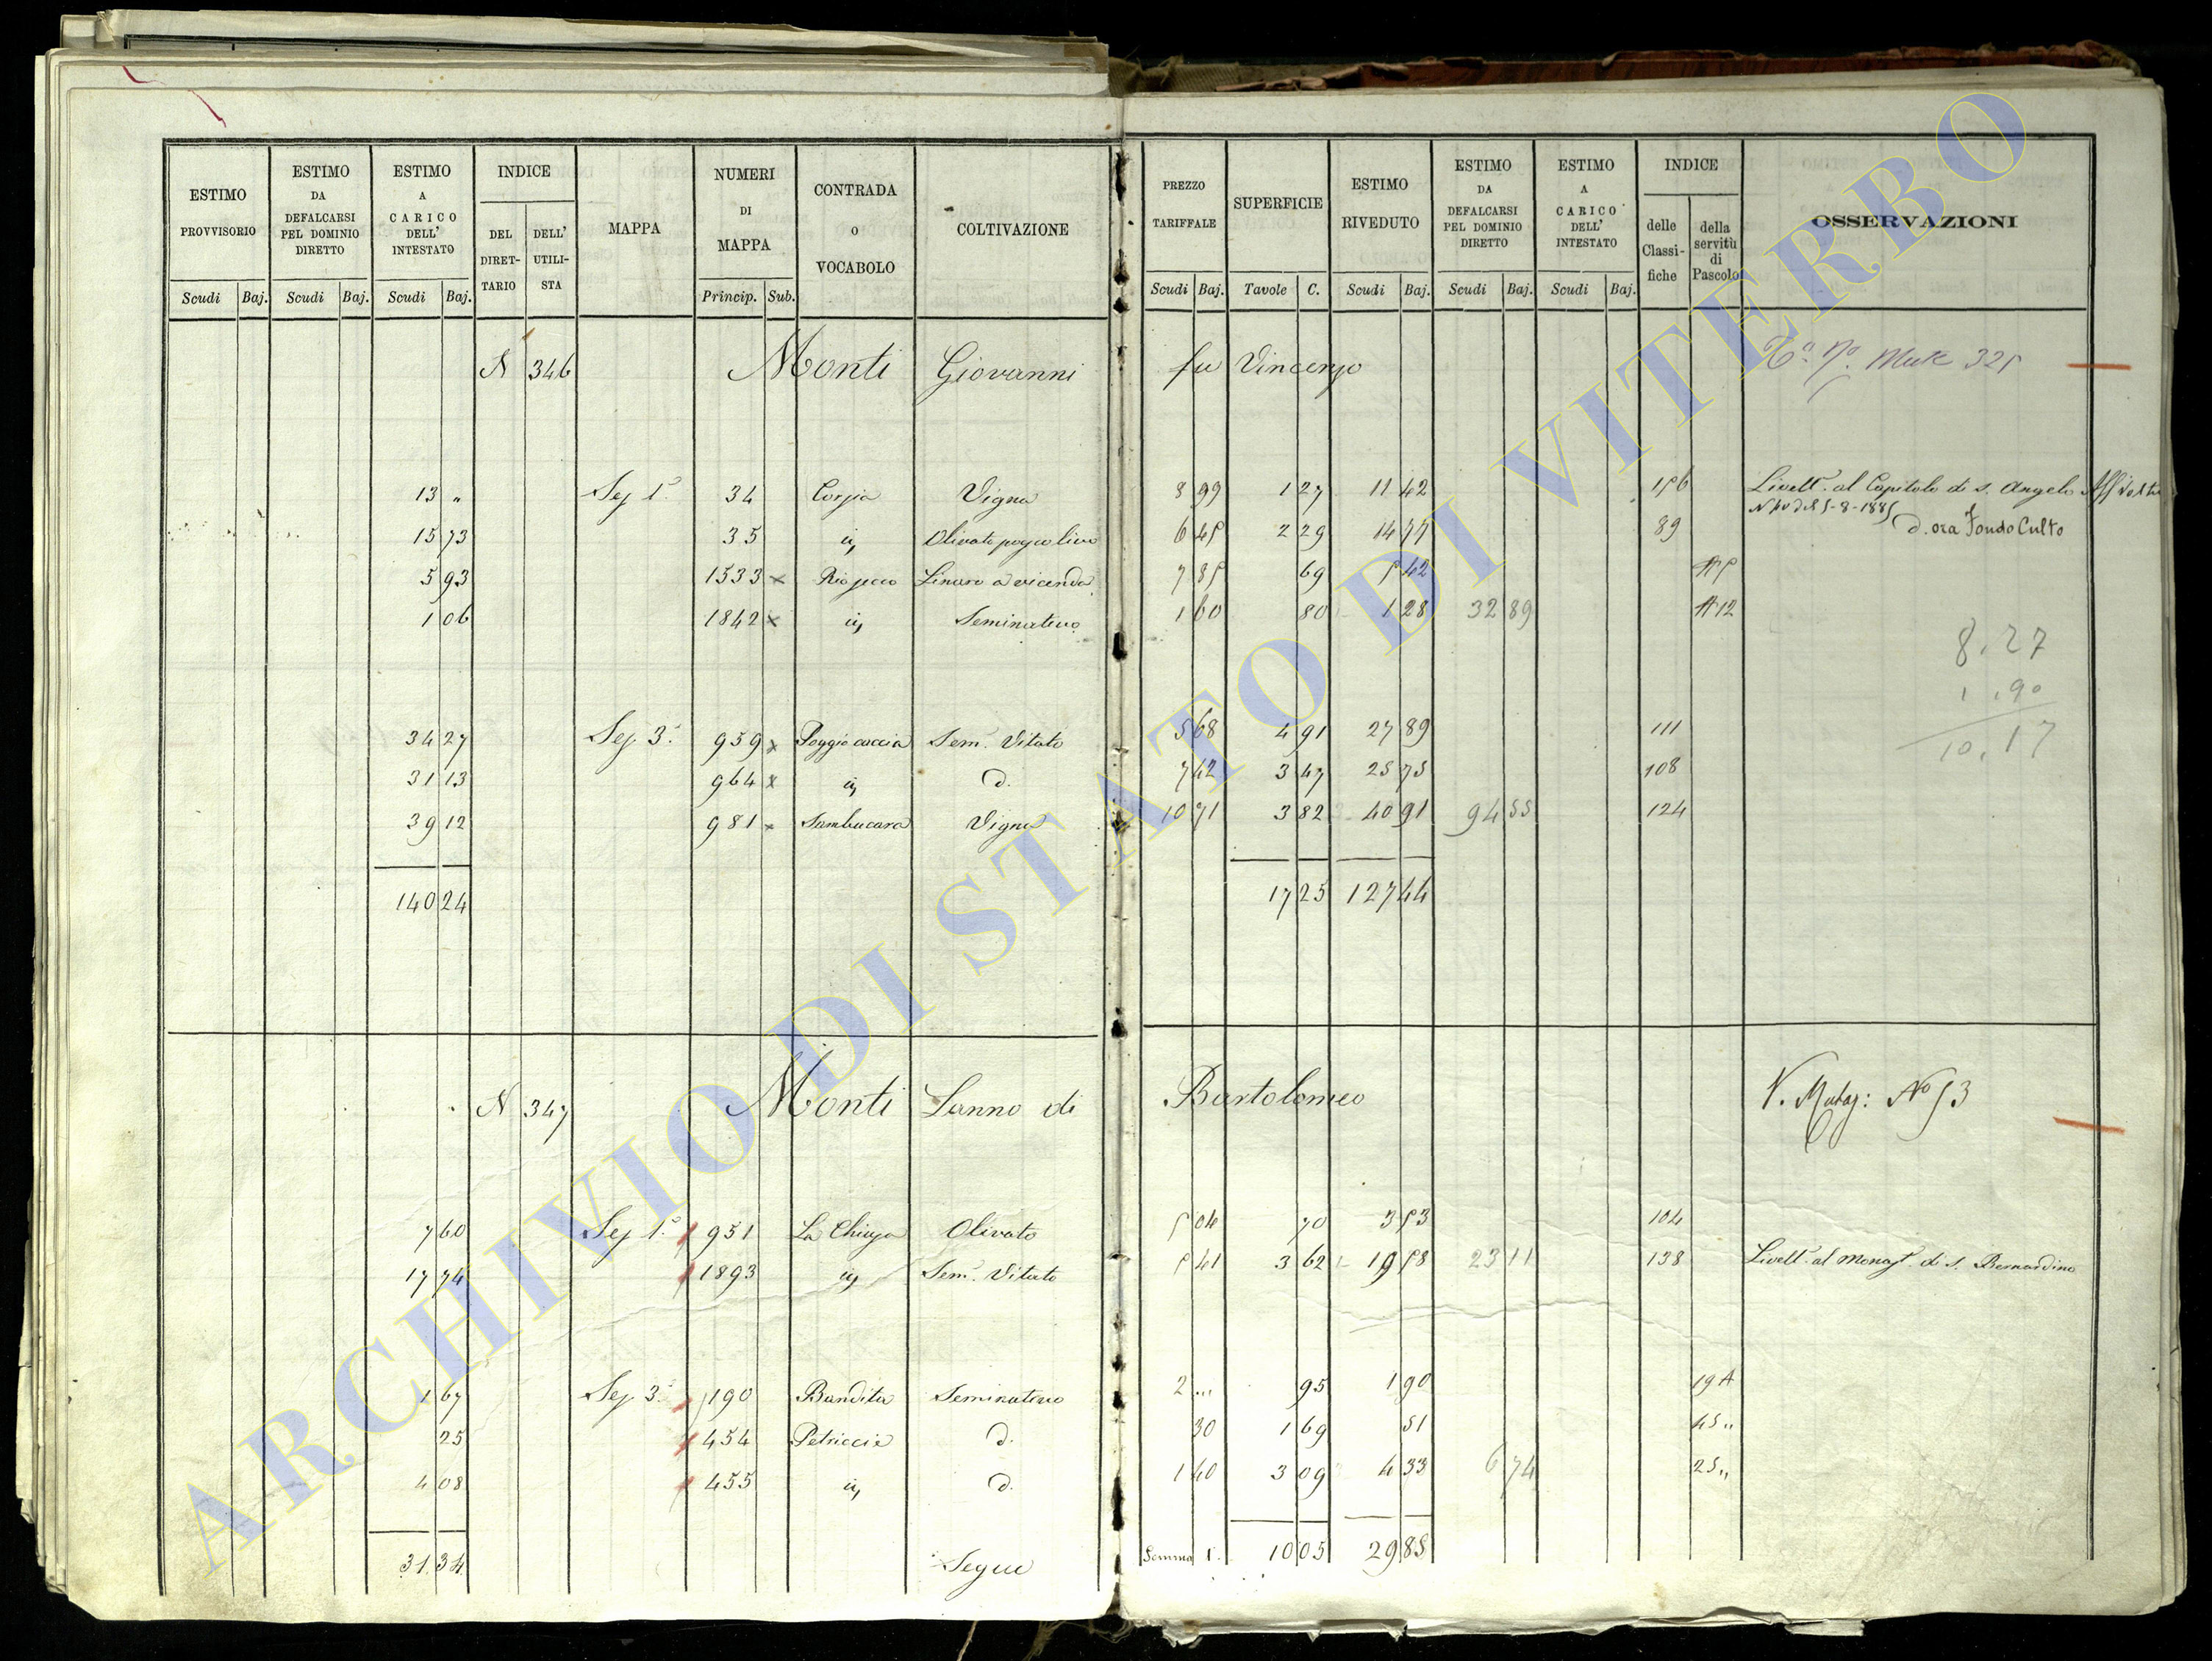 ESTIMO PROVVISORIO
ESTIMO DA DEFALCARSI PEL DOMINIO DIRETTO
ESTIMO A CARICO DELL' INTESTATO
INDICE
DEL DIRET-TARIO
DELL' UTILI-STA
MAPPA
NUMERI DI MAPPA
CONTRADA O VOCABOLO
COLTIVAZIONE
PREZZO TARIFFALE
SUPERFICIE
ESTIMO RIVEDUTO
ESTIMO DA DEFALCARSI PEL DOMINIO DIRETTO
ESTIMO A CARICO DELL' INTESTATO
INDICE
delle Classi-fiche
della servitù di Pascolo
OSSERVAZIONI
Scudi Baj. Scudi Baj. Scudi Baj. Princip. Sub. Scudi Baj. Tavole C. Scudi Baj. Scudi Baj. Scudi Baj.
N 346 Monti Giovanni fu Vincenzo 325
13 „ Sez 1ª 34 Vigna 8 99 1 27 11 42 156 Livell. al Capitolo di S. Angelo
d. ora Fondo Culto
15 73 35 id 6 45 2 29 14 77 89
5 93 1533 x Rio secco Linaro a vicenda 7 85 69 5 42 A 5
1 06 1842 x id Seminativo 1 60 80 1 28 32 89 A 12
8.27
1.90
10.17
34 27 Sez 3ª 959 x Poggio caccia Sem. Vitato 5 68 4 91 27 89 111
31 13 964 x id d. 7 42 3 47 25 75 108
39 12 981 x Sambucara Vigna 10 71 3 82 40 91 94 55 124
140 24 17 25 127 44
N 347 Monti Sanno di Bartolomeo No 53
7 60 Sez 1ª 951 La Chiusa Olivato 5 04 70 3 53 104
17 74 1893 id Sem. Vitato 5 41 3 62 19 58 23 11 138 Livell. al Monast. di S. Bernardino
1 67 Sez 3ª 190 Bandita Seminativo 2 ... 95 1 90 19 A
25 454 Petriccie d. 30 1 69 51 45 „
4 08 455 id d. 1 40 3 09 4 33 6 74 25 „
31 34 Segue Somma 10 05 29 85
ARCHIVIO DI STATO DI VITERBO